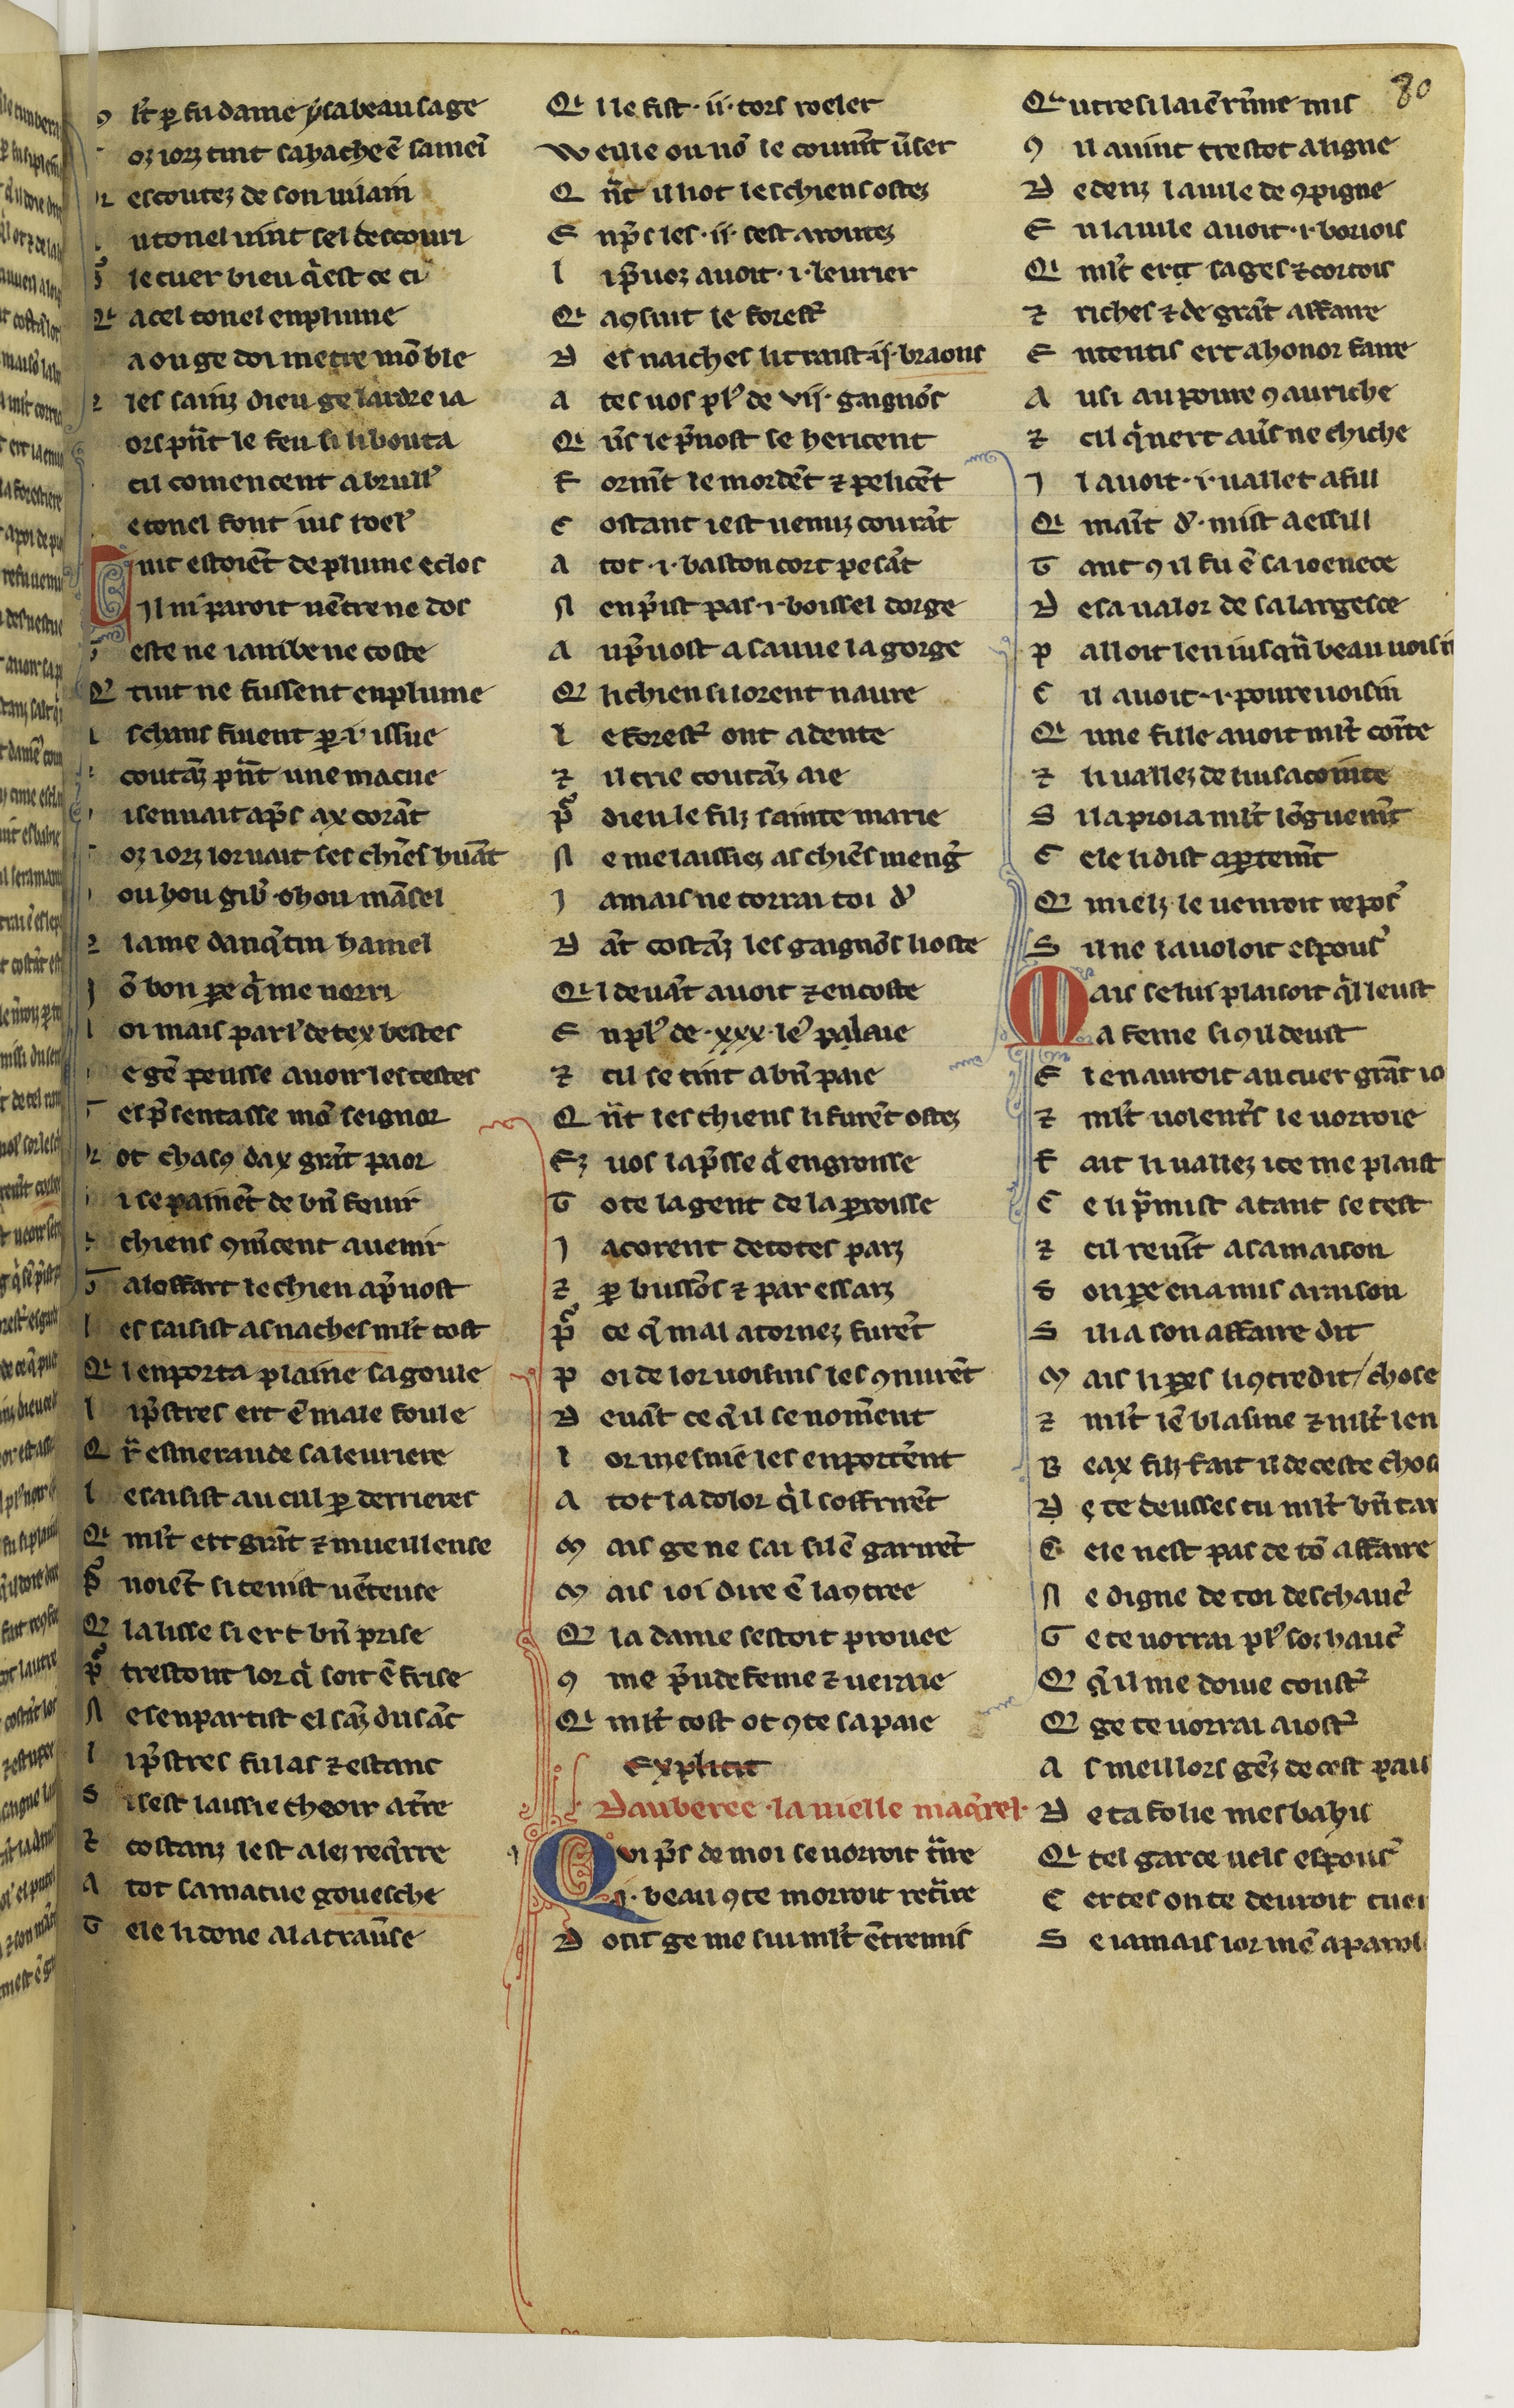 80
lt̄ ꝑ fu dame ysabeau sage
oz iorz tint sa hache ē sa mein
escoutez de son vilain
u tonel vint sel descouvri
le cuer bieu q̄ est ce ci
a cel tonel enplume
a ou ge doi metre mō ble
les sainz dieu ge lardre ia
ors pn̄t le feu si li bouta
cil comencent a brull'
e tonel font ius roel'
Tuit estoiēt de plume eclos
Il ni paroit vētre ne dos
este ne iambe ne coste
Q̄ tuit ne fussent enplume
s chans fuient ꝑ .i. issue
coutāz pn̄t une macue
il en vait ap̄s ax corāt
oz iorz lor vait ses chiēs huāt
ou hou gib' ohou māsel
lame danq̄tin hamel
ō bon pere q̄ me norri
oi mais parl' de tex bestes
e gē peusse avoir les testes
es p̄sentasse mō seignor
ot chasꝯ dax grāt paor
il se painēt de bn̄ fouir
chiens ꝯm̄cent a venir
T aloffart le chien a p̄vost
l es saisist as naches ml̄t tost
Q̄ l enporta plaine sa goule
l i p̄stres ert ē male foule
Q r̄ esmeraude sa leuriere
l e saisist au cul ꝑ derrieres
Q̄ ml̄t ert grāt ⁊ mueillense
P̄ noiēt si tenist vētense
Q la lisse si ert bn̄ prise
P̄ trestout lor q̄ soit ē frise
N e s en partist el sāz du sāc
l i p̄stres fu las ⁊ estans
S il est laissie cheoir a t̄re
⁊ costanz lest alez req̄rre
A tot sa macue gouesche
T ele li done a la trav̄se
Q̄ l le fist .ii. tors roeler
W eille ou nō le covin̄t v̄ser
Q n̄t il liot les chiens ostez
E np̄s les .ii. sest aroutez
l i p̄voz avoit .i. leurier
Q̄ aꝯsuit le forest'
D es naiches li traist .ii. braons
A tes vos pl' de vii. gaignōs
Q̄ v̄s le p̄vost se hericent
F orm̄t le mordēt ⁊ pelicēt
C ostant i est venuz courāt
A tot .i. baston cort pesāt
N en p̄ist pas .i. boissel dorge
A u p̄vost a sauve la gorge
Q li chien si lorent navre
l e forest' ont adente
⁊ il crie coutāz aie
P̄ dieu le filz sainte marie
N e me laissiez as chiēs menḡ
I amais ne torrai toi d'
D āt costāz les gaignōs li oste
Q̄ l devāt avoit ⁊ en coste
E n pl' de .xxx. le' palaie
⁊ cil se tint a bn̄ paie
Q n̄t les chiens li furēt ostez
Ez vos la p̄sse q̄ engroisse
T ote la gent de la ꝑroisse
I acorent de totes parz
⁊ ꝑ bussōs ⁊ par essarz
P̄ ce q̄ mal atornez furēt
P oi de lor voisins les ꝯnurēt
D evāt ce q̄ il se nom̄ent
l or mesnie les enportēnt
A tot la dolor q̄ l soffrirēt
M ais ge ne sai sil ē garirēt
M ais ioi dire ē la ꝯtree
Q la dame sestoit provee
ꝯ me p̄ude feme ⁊ veraie
Q̄ ml̄t tost ot ꝯte sa paie
Explicit
Dauberee la vielle maq̄rel.
Qvi p̄s de moi se vorroit t̄ire
.i. beau ꝯte morroit ret̄ire
D ont ge me sui ml̄t ētremis
Q̄ utres il aiē rime mis
ꝯ il avint trestot a ligne
D edenz la vile de ꝯpigne
E n la vile avoit .i. boriois
Q̄ ml̄t ert sages ⁊ cortois
⁊ riches ⁊ de grāt affaire
E ntentis ert a honor faire
A usi au povre ꝯ au riche
⁊ cil q̄ nert av̄s ne chiche
I l avoit .i. vallet a fill
Q̄ maīt d'. mist a essill
T ant ꝯ il fu ē sa ioenece
D e sa valor de sa largesce
P alloit len iusqn̄ beauvoisin
C il avoit .i. povre voisin
Q̄ une fille avoit ml̄t cointe
⁊ li vallez de lui sacointe
S il a proia ml̄t lōguem̄t
C ele li dist aꝑtem̄t
Q mielz le venroit repos'
S il ne la voloit espous'
Mais se lui plaisoit q̄ l leust
a feme si ꝯ il deust
E l en auroit au cuer grāt io
⁊ ml̄t volent's le vorroie
F ait li vallez ice me plaist
C e li p̄mist atant se test
⁊ cil revīt a sa maison
S on pere en a mis a raison
S il i a son affaire dit
M ais li peres li ꝯtredit / chose
⁊ ml̄t lē blasme ⁊ ml̄t len
B eax filz fait il de ceste chos
D e te deusses tu ml̄t bn̄ tai
C ele nest pas de tō affaire
N e digne de toi deschauc'
G e te vorrai pl' sorhauc'
Q q̄ il me doive coust'
Q ge te vorrai aiost'
A s meillors gēz de cest pais
D e ta folie mesbahis
Q̄ tel garce vels espous'
C ertes on te devroit tuer
S e iamais ior mē aparol